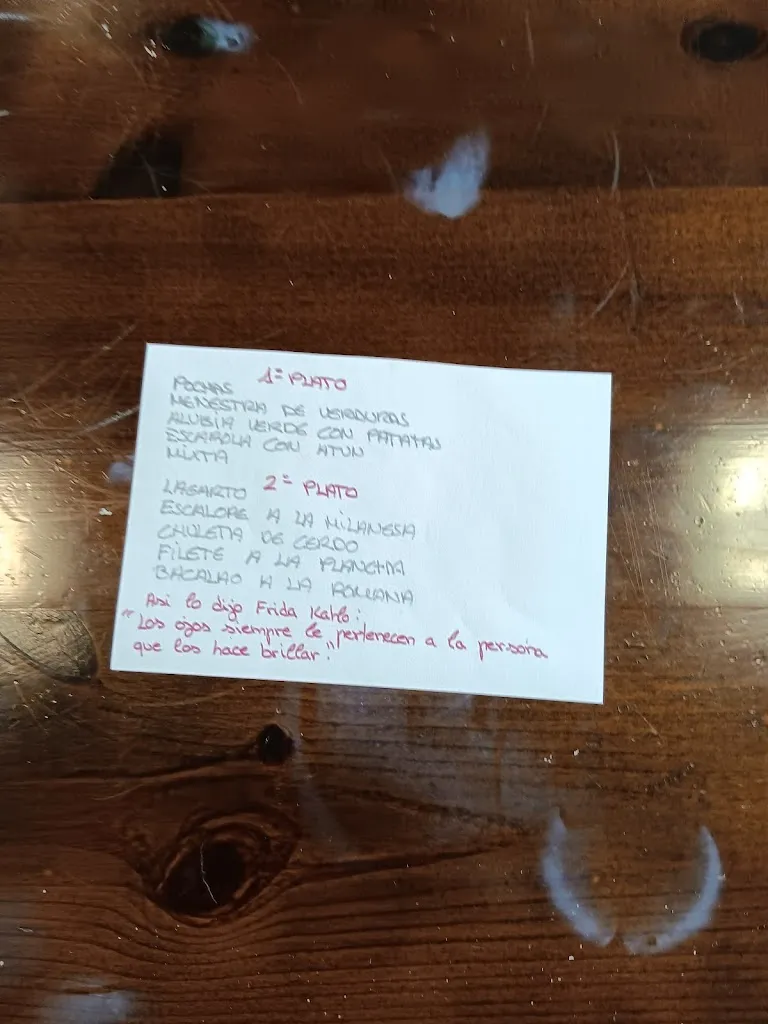 1º PLATO
POCHAS
MENESTRA DE VERDURAS
ALUBIA VERDE CON PATATAS
ESCAROLA CON ATUN
MIXTA
2º PLATO
LAGARTO
ESCALOPE A LA MILANESA
CHULETA DE CERDO
FILETE A LA PLANCHA
BACALAO A LA ROMANA
Asi lo dijo Frida Kahlo:
"Los ojos siempre le pertenecen a la persona
que los hace brillar."